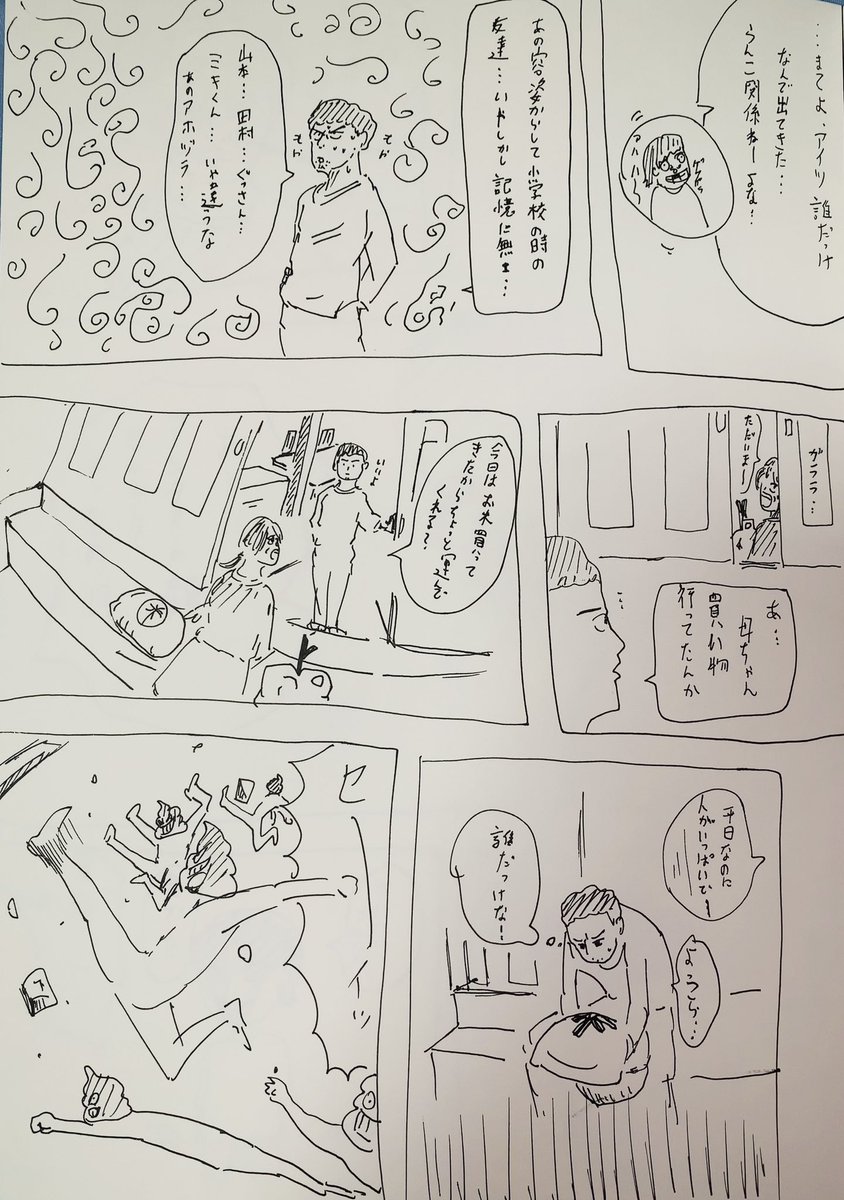 …まてよ、アイツ 誰だっけ
なんで出てきた…
うんこ関係ねーよな…
アハハ
あの容姿からして小学校の時の
友達…いやしかし記憶に無え…
モヤ
モヤ
山本…田村…ぐっさん…
ミキくん…いや違うな
あのアホヅラ…
ガララ…
ただいまー
あ…
母ちゃん
買い物
行ってたんか
今日はお米買って
きたからちょっと運んで
くれる?
いいよ
平日なのに
人がいっぱいで〜
誰だっけなー
セーイッ